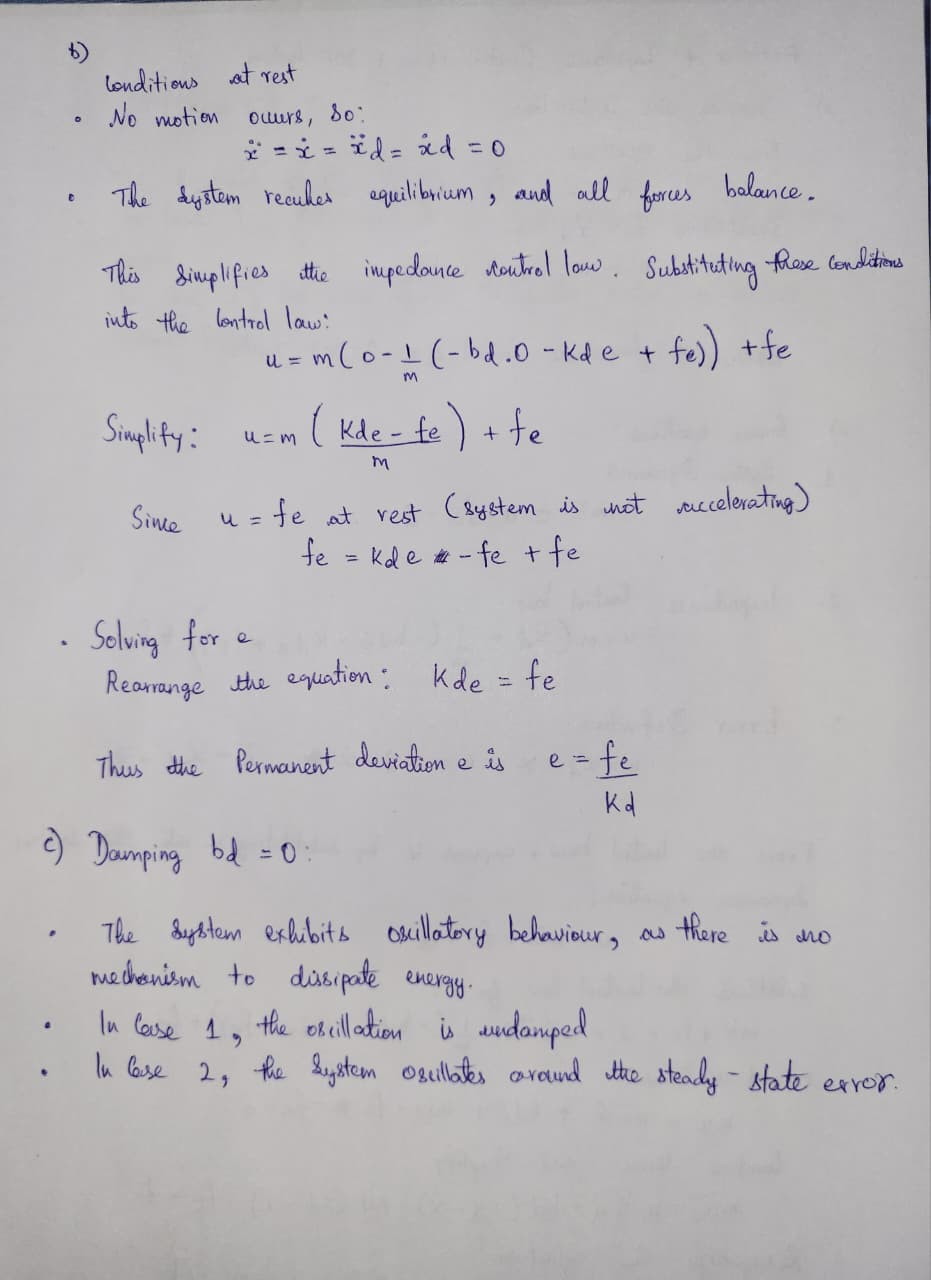 b)
Conditions at rest
• No motion occurs, so:
ẍ = ẋ = ẍd = ẋd = 0
• The system reaches equilibrium, and all forces balance.
This simplifies the impedance control law. Substituting these conditions
into the control law:
u = m(0 - 1/m (-bd.0 - Kd e + fe)) + fe
Simplify: u = m ( (Kde - fe)/m ) + fe
Since u = fe at rest (system is not accelerating)
fe = Kd e - fe + fe
• Solving for e
Rearrange the equation: Kde = fe
Thus the Permanent deviation e is e = fe/Kd
c) Damping bd = 0:
• The system exhibits oscillatory behaviour, as there is no
mechanism to dissipate energy.
• In Case 1, the oscillation is undamped
• In Case 2, the system oscillates around the steady-state error.